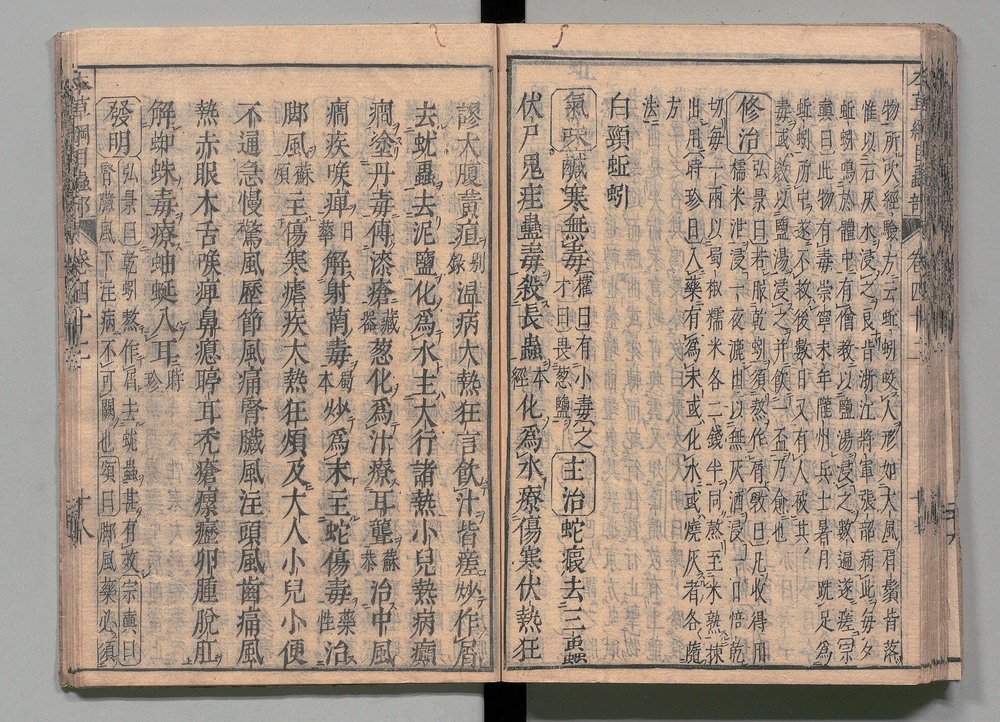 物所吹經驗方云蚯蚓咬人形如大風眉鬚皆落
惟以石灰水浸之良昔浙江將軍張韶病此每夕
蚯蚓鳴於體中有僧教以鹽湯浸之數遍遂瘥宗
奭曰此物有毒崇寧末年隴州兵士暑月跣足爲
蚯蚓所中遂不救後數日又有人被其
毒或教以鹽湯浸之并飲一盃乃愈也
修治弘景曰若服乾蚓須熬作屑斅曰凡收得用
糯米泔浸一夜漉出以無灰酒浸一日焙乾
切每一兩以蜀椒糯米各二錢半同熬至米熟揀
出用時珍曰入藥有爲末或化水或燒灰者各隨
方
法
白頸蚯蚓
氣味鹹寒無毒權曰有小毒之才曰畏葱鹽主治蛇瘕去三蟲
伏尸鬼疰蠱毒殺長蟲本經化爲水療傷寒伏熱狂
謬大腹黃疸別錄溫病大熱狂言飲汁皆瘥炒作屑
去蚘蟲去泥鹽化爲水主天行諸熱小兒熱病癲
癇塗丹毒傅漆瘡藏器葱化爲汁療耳聾蘇恭治中風
癇疾喉痹日華解射罔毒蜀本炒爲末主蛇傷毒藥性治
脚風蘇頌主傷寒瘧疾大熱狂煩及大人小兒小便
不通急慢驚風歷節風痛腎臟風注頭風齒痛風
熱赤眼木舌喉痹鼻瘜聤耳禿瘡瘰癧卵腫脫肛
解蜘蛛毒療蚰蜒入耳時珍
發明弘景曰乾蚓熬作屑去蚘蟲甚有效宗奭曰
腎臟風下注病不可闕也頌曰脚風藥必須
本草綱目蟲部 卷四十二
十八